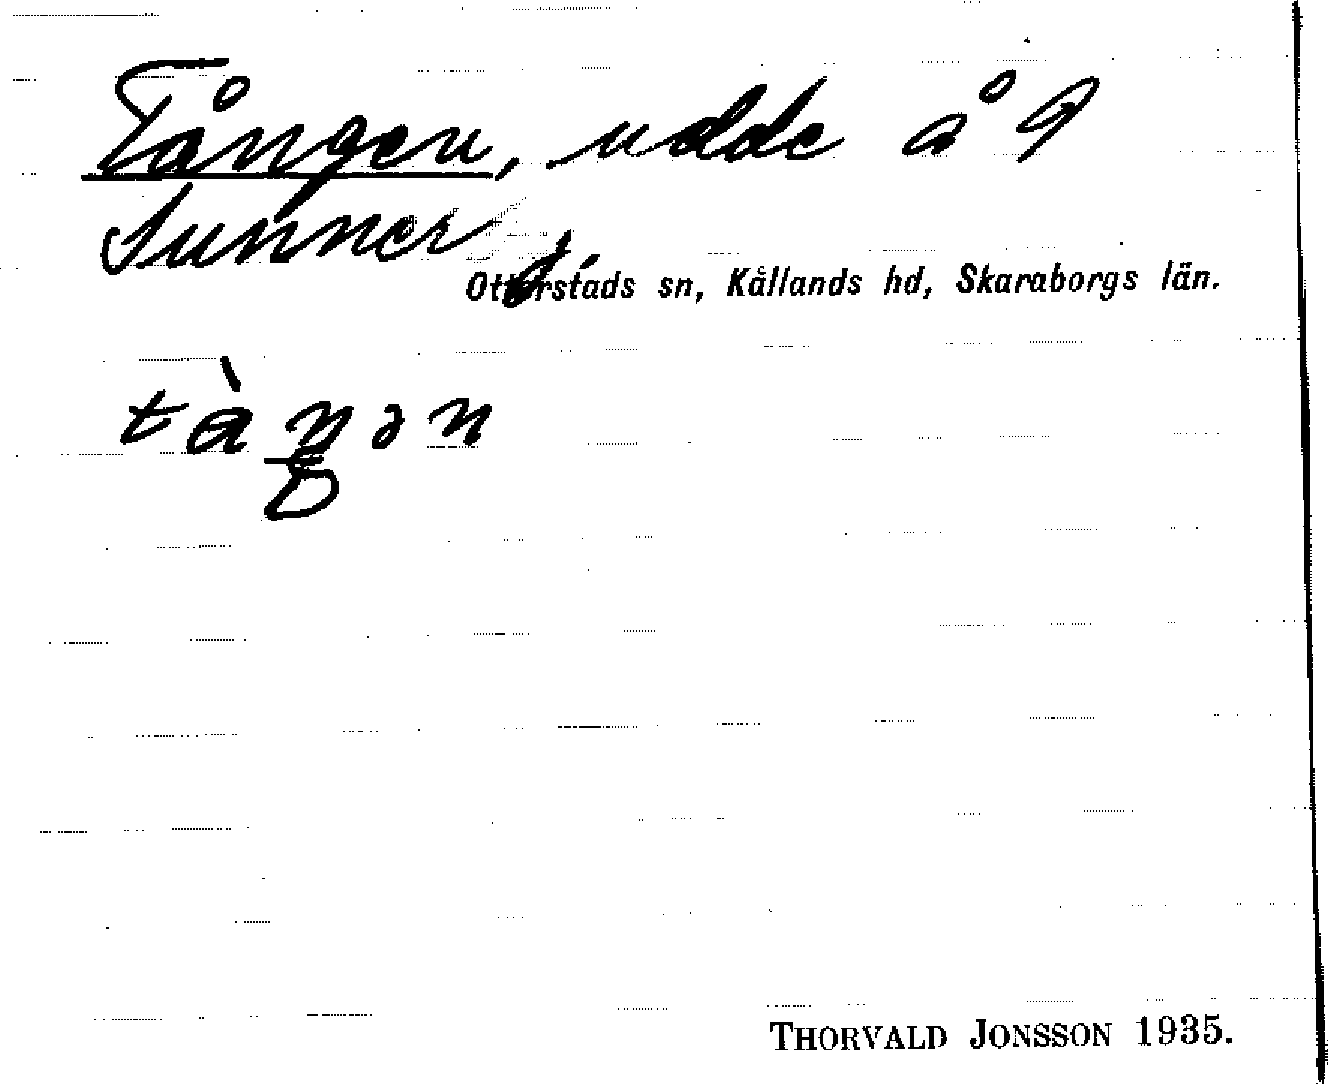 Tången, udde å 9
Sunnerg.
Otterstads sn, Kållands hd, Skaraborgs län.
tàŋən
THORVALD JONSSON 1935.